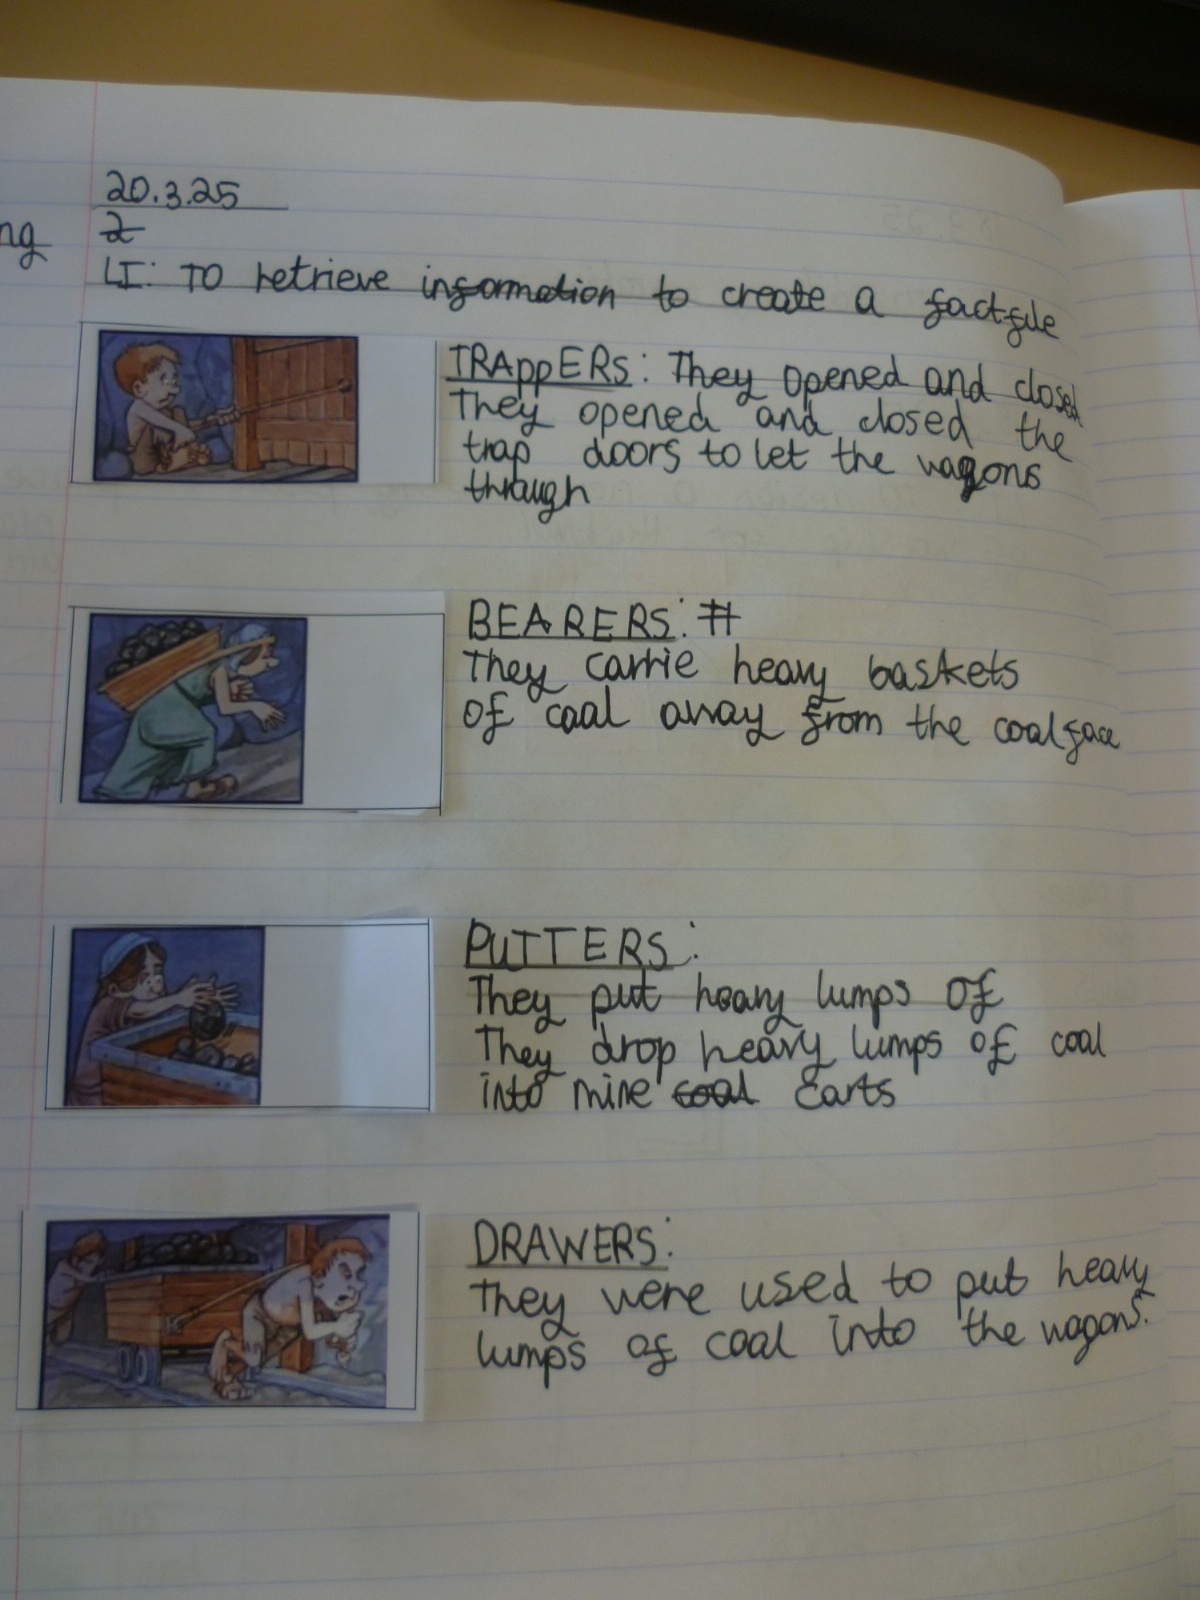 20.3.25
ng
2
LI: TO retrieve information to create a factfile
TRAppERS: They opened and closed
They opened and closed the
trap doors to let the wagons
through
BEARERS: #
They carrie heavy baskets
of coal away from the coalface
PUTTERS:
They put heavy lumps of
They drop heavy lumps of coal
into mine coal carts
DRAWERS:
they were used to put heavy
lumps of coal into the wagons.